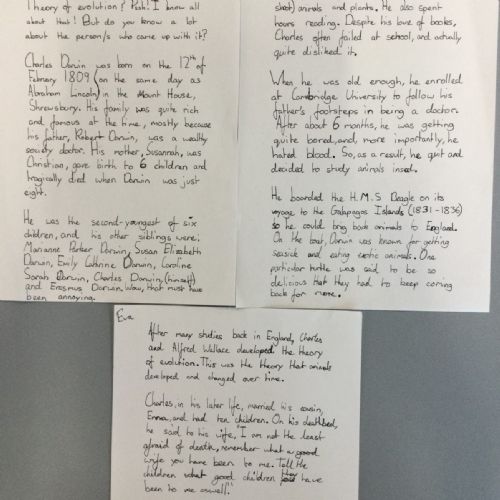 Theory of evolution? Pssh! I know all
about that! But do you know a lot
about the person/s who came up with it?
Charles Darwin was born on the 12th of
February 1809 (on the same day as
Abraham Lincoln) in the Mount House,
Shrewsbury. His family was quite rich
and famous at the time, mostly because
his father, Robert Darwin, was a wealthy
society doctor. His mother, Susannah, was
Christian, gave birth to 6 children and
tragically died when Darwin was just
eight.
He was the second-youngest of six
children, and his other siblings were:
Marianne Parker Darwin, Susan Elizabeth
Darwin, Emily Cathrine Darwin, Caroline
Sarah Darwin, Charles Darwin (himself)
and Erasmus Darwin. Wow, that must have
been annoying.
animals and plants. He also spent
hours reading. Despite his love of books,
Charles often failed at school, and actually
quite disliked it.
When he was old enough, he enrolled
at Cambridge University to follow his
father's footsteps in being a doctor.
After about 6 months, he was getting
quite bored, and, more importantly, he
hated blood. So, as a result, he quit and
decided to study animals insted.
He boarded the H.M.S Beagle on its
voyage to the Galapagos Islands (1831-1836)
so he could bring back animals to England.
On the boat, Darwin was known for getting
seasick and eating exotic animals. One
particular turtle was said to be so
delicious that they had to keep coming
back for more.
Eva
After many studies back in England, Charles
and Alfred Wallace developed the theory
of evolution. This was the theory that animals
developed and changed over time.
Charles, in his later life, married his cousin,
Emma, and had ten children. On his deathbed,
he said to his wife, "I am not the least
afraid of death, remember what a good
wife you have been to me. Tell the
children what good children they have
been to me aswell."